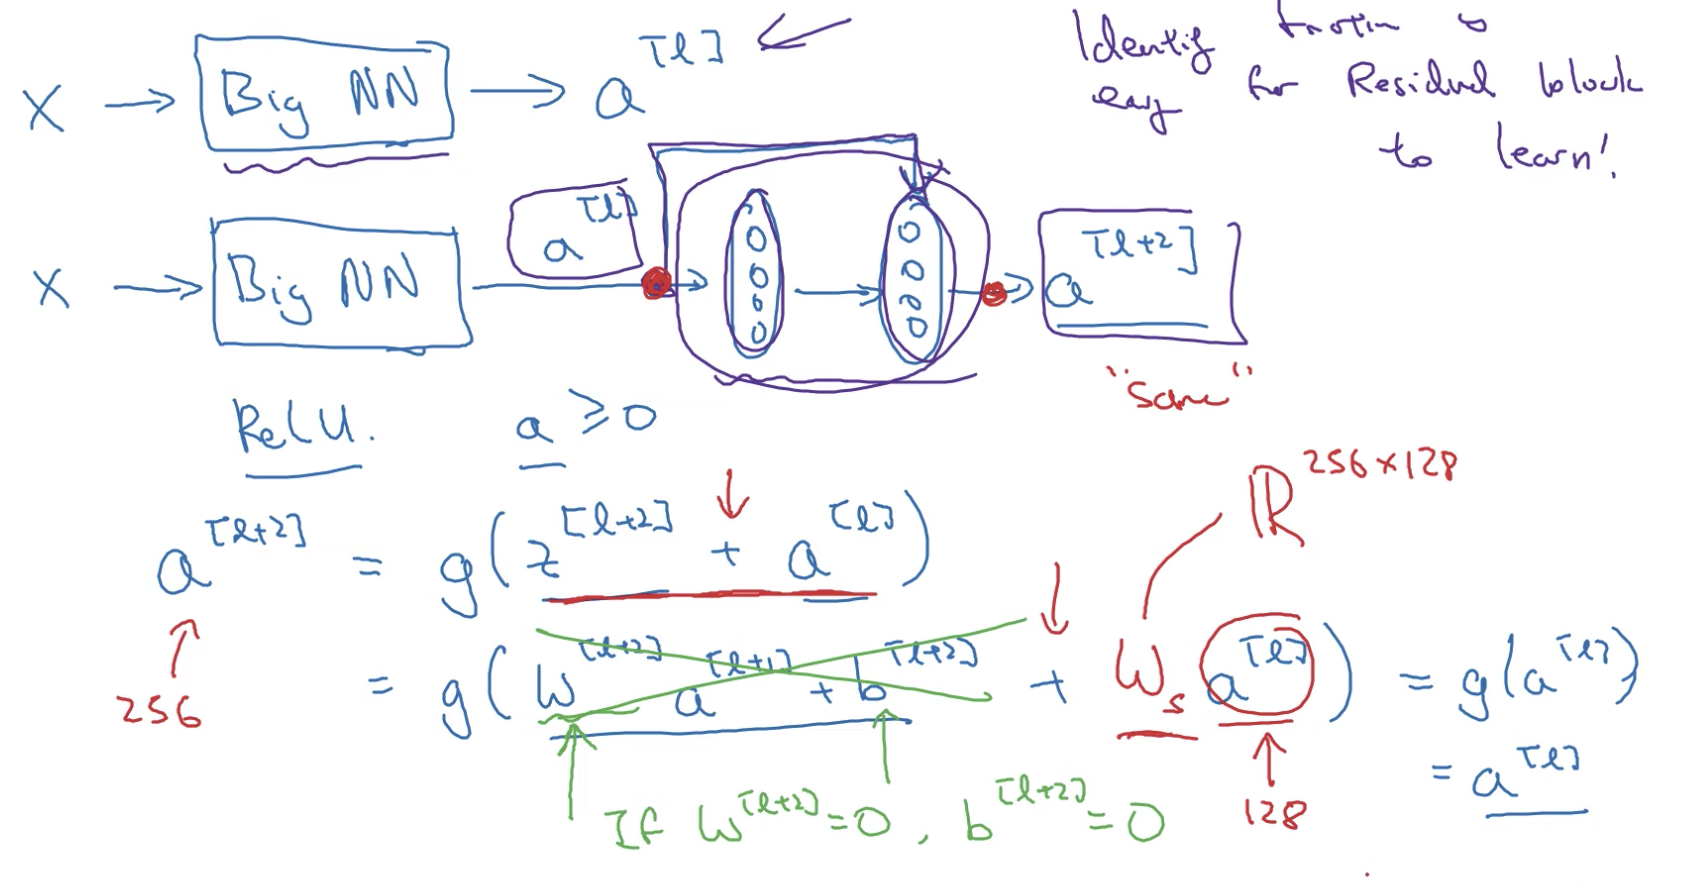 X → Big NN → a^[l]
Identity function is
easy for Residual block
to learn!
X → Big NN a^[l] → a^[l+2]
"same"
ReLU. a ≥ 0
ℝ^256×128
a^[l+2] = g(z^[l+2] + a^[l])
256
= g(W^[l+2] a^[l+1] + b^[l+2] + W_s a^[l]) = g(a^[l])
= a^[l]
If W^[l+2] = 0, b^[l+2] = 0
128